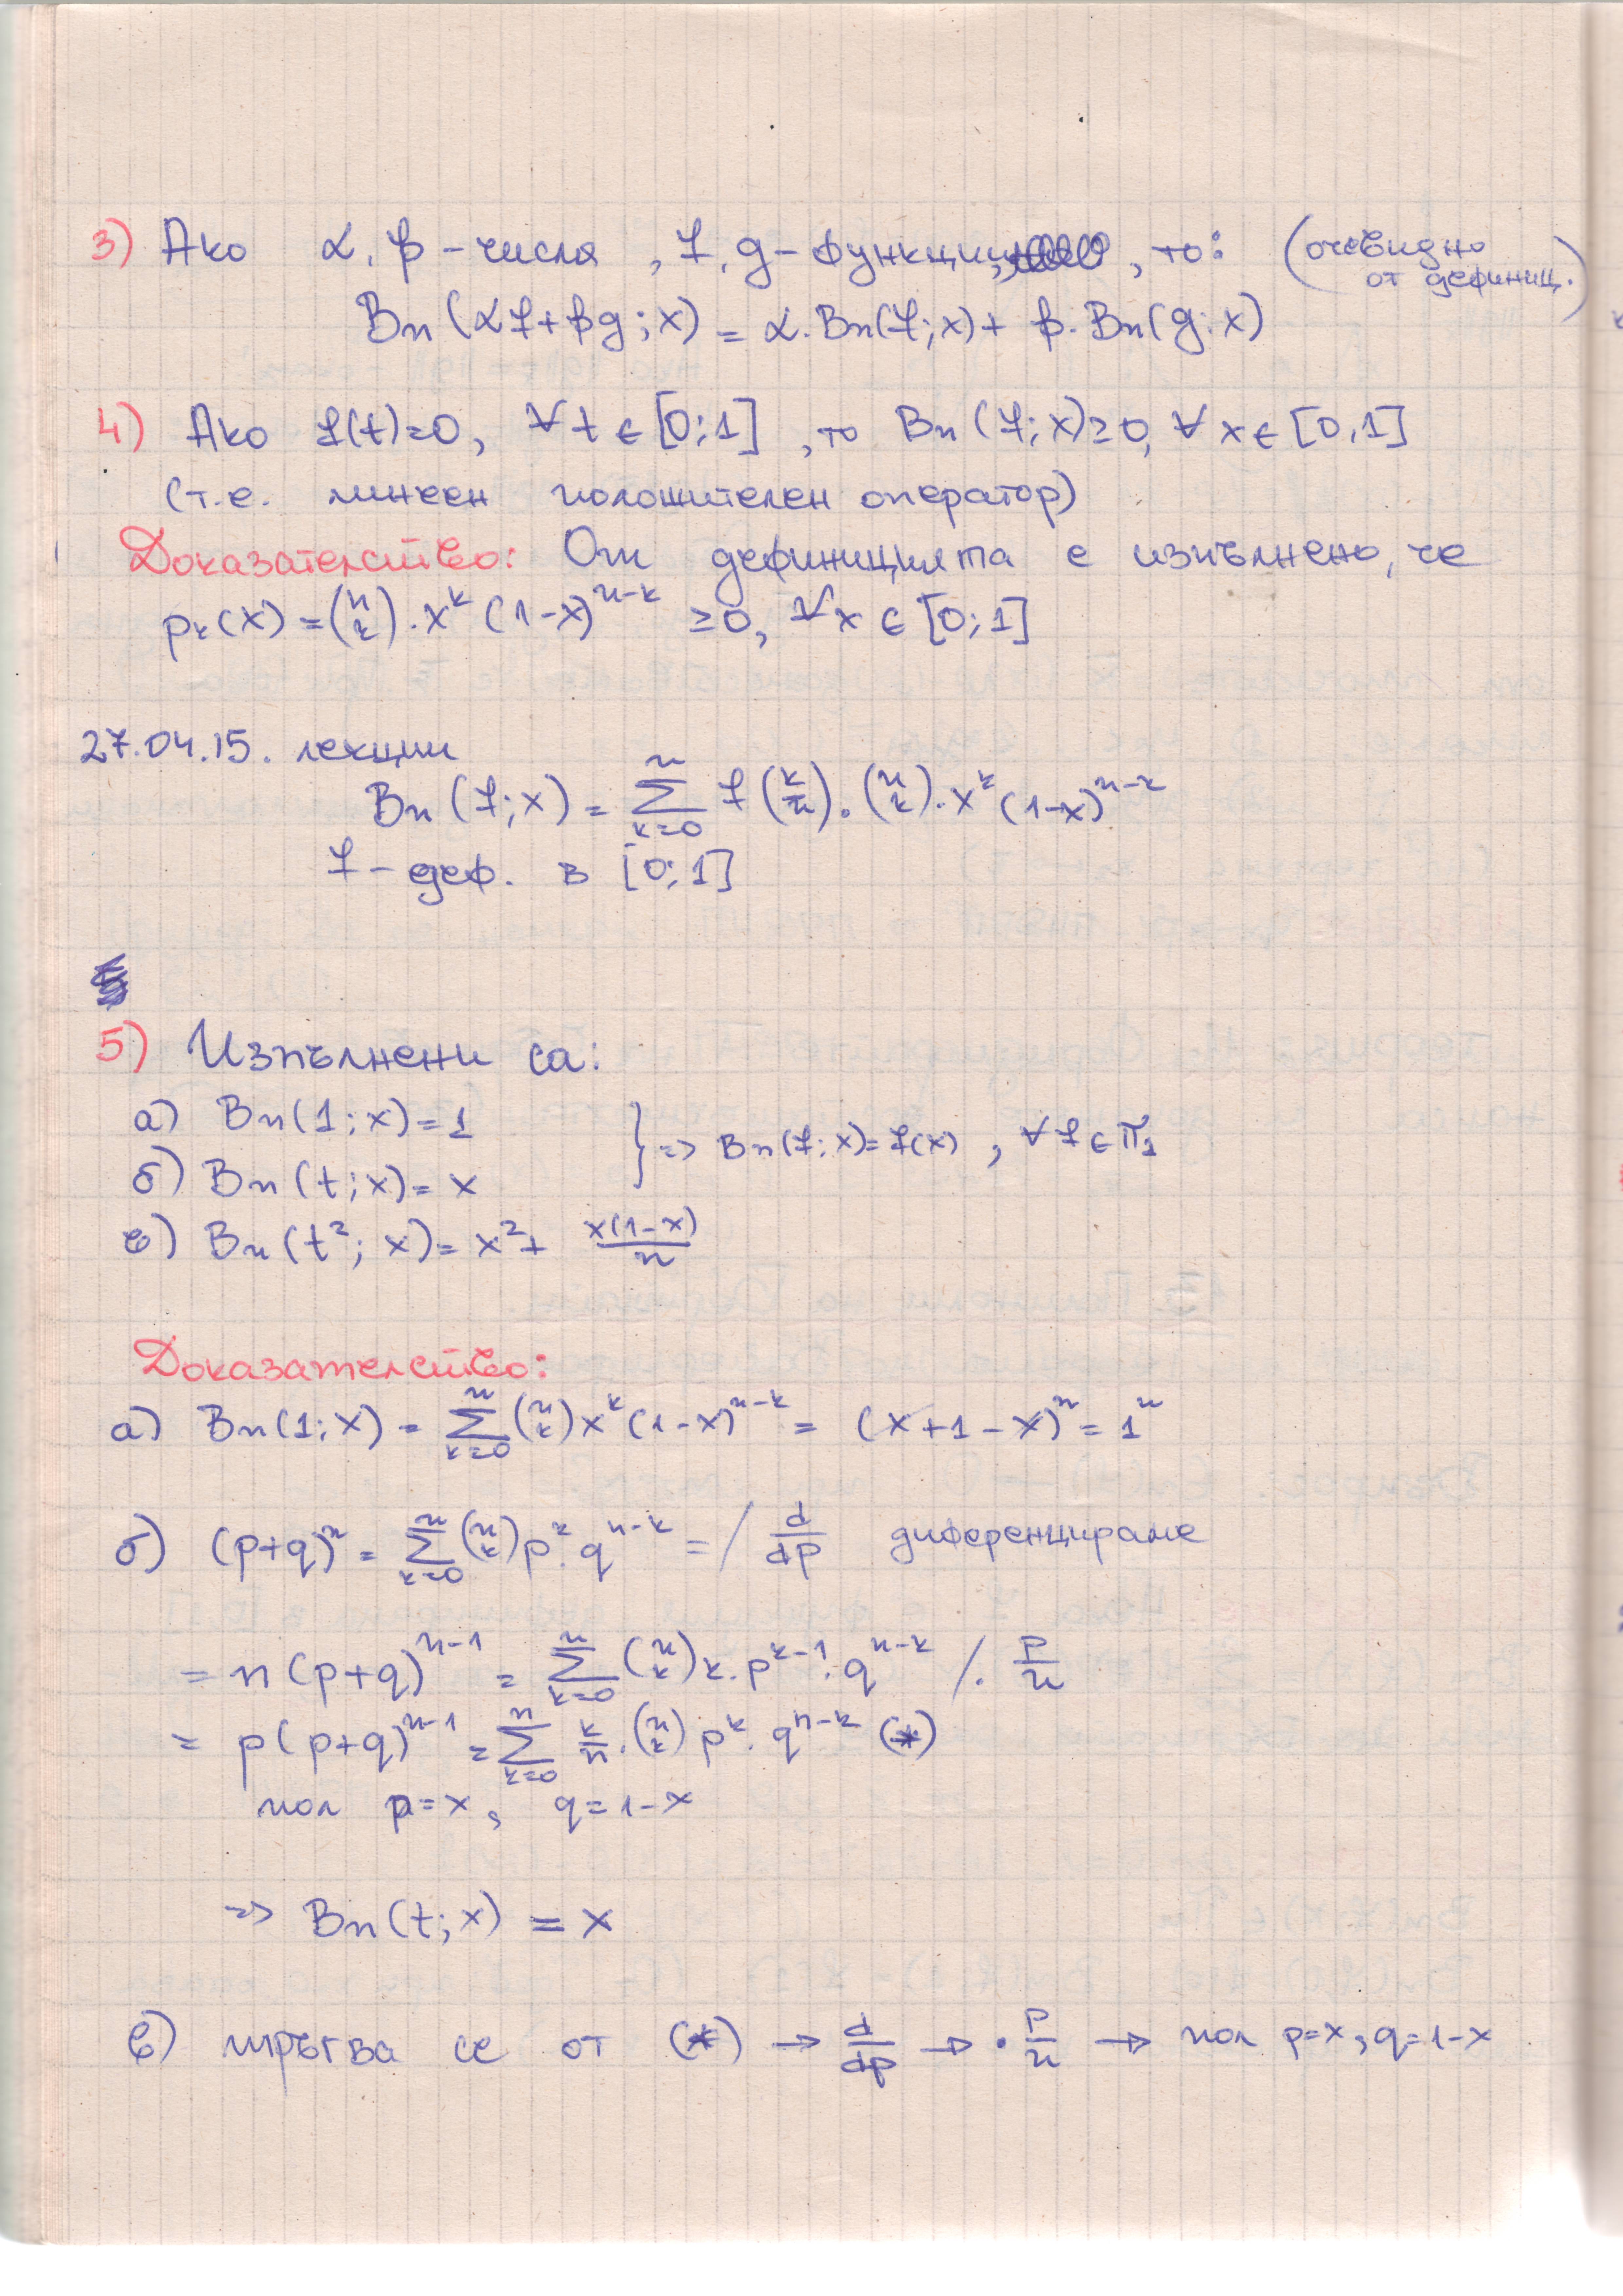 3) Ако α, β – числа, f, g – функции, то: (очевидно от дефиниц.)
Bn(αf+βg; x) = α.Bn(f; x) + β.Bn(g; x)
4) Ако f(t)≥0, ∀t ∈ [0;1], то Bn(f; x)≥0, ∀x ∈ [0,1]
(т.е. линеен положителен оператор)
Доказателство: От дефиницията е изпълнено, че
pk(x) = (n k).x^k (1-x)^{n-k} ≥0, ∀x ∈ [0;1]
27.04.15. лекции
Bn(f; x) = ∑_{k=0}^{n} f(k/n).(n k).x^k (1-x)^{n-k}
f – деф. в [0;1]
5) Изпълнени са:
а) Bn(1; x) = 1
} => Bn(f; x) = f(x), ∀f ∈ π1
б) Bn(t; x) = x
в) Bn(t²; x) = x² + x(1-x)/n
Доказателство:
а) Bn(1; x) = ∑_{k=0}^{n} (n k) x^k (1-x)^{n-k} = (x+1-x)^n = 1^n
б) (p+q)^n = ∑_{k=0}^{n} (n k) p^k.q^{n-k} = / d/dp диференцираме
= n(p+q)^{n-1} = ∑_{k=0}^{n} (n k) k.p^{k-1}.q^{n-k} /. p/n
= p(p+q)^{n-1} = ∑_{k=0}^{n} k/n.(n k) p^k.q^{n-k} (*)
пол p=x, q=1-x
=> Bn(t; x) = x
в) тръгва се от (*) → d/dp → . p/n → пол p=x, q=1-x